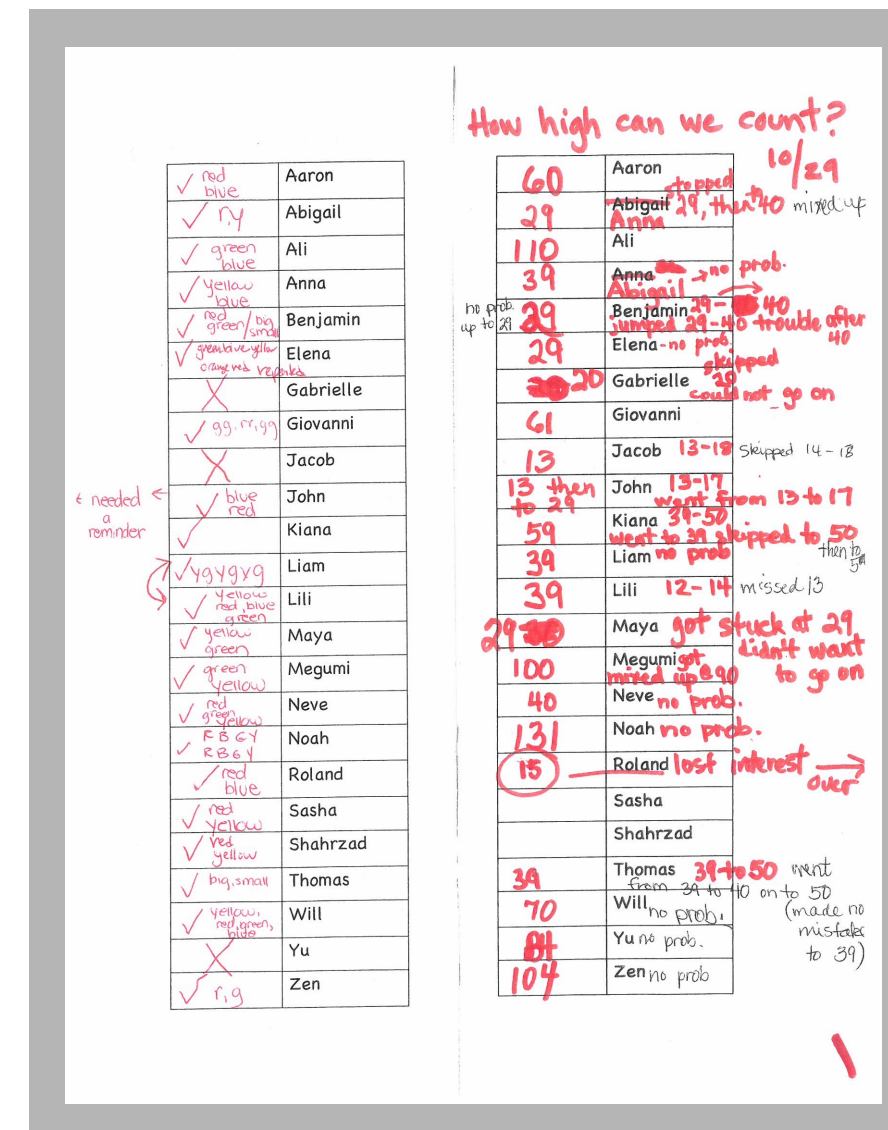 How high can we count?
10/29
✓ red
blue
Aaron
✓ r,y
Abigail
✓ green
blue
Ali
✓ yellow
blue
Anna
✓ red
green/big
small
Benjamin
✓ green blue yellow
orange red repeated
Elena
X
Gabrielle
✓ gg,rr,gg
Giovanni
X
Jacob
needed
a
reminder
✓ blue
red
John
✓
Kiana
✓ ygygyg
Liam
✓ Yellow
red, blue
green
Lili
✓ yellow
green
Maya
✓ green
yellow
Megumi
✓ red
green
yellow
Neve
✓ RBGY
RBGY
Noah
✓ red
blue
Roland
✓ red
yellow
Sasha
✓ red
yellow
Shahrzad
✓ big, small
Thomas
✓ yellow,
red, green,
blue
Will
X
Yu
✓ r,g
Zen
60
Aaron
stopped
29
Abigail 29, then to 40 mixed up
Anna
110
Ali
39
Anna → no prob.
Abigail
no prob.
up to 29
29
Benjamin 29- 40
jumped 29-40 trouble after
40
29
Elena - no prob
skipped
20
Gabrielle
could not go on
61
Giovanni
13
Jacob 13-18 skipped 14-18
13 then
to 29
John 13-17
went from 13 to 17
59
Kiana 39-50
went to 39 skipped to 50
then to
39
Liam no prob
39
Lili 12-14 missed 13
29
Maya got stuck at 29
didn't want
to go on
100
Megumi got
mixed up @ 90
40
Neve no prob.
131
Noah no prob.
15
Roland lost interest →
over
Sasha
Shahrzad
39
Thomas 39 to 50 went
from 39 to 40 on to 50
(made no
mistakes
to 39)
70
Will no prob.
Yu no prob.
104
Zen no prob